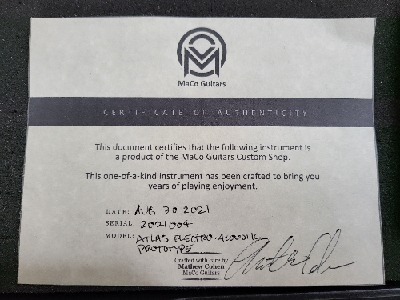 MaCo Guitars
CERTIFICATE OF AUTHENTICITY
This document certifies that the following instrument is
a product of the MaCo Guitars Custom Shop.
This one-of-a-kind instrument has been crafted to bring you
years of playing enjoyment.
DATE: AUG 30 2021
SERIAL: 2021004
MODEL: ATLAS ELECTRO-ACOUSTIC
PROTOTYPE
Crafted with care by
Matthew Cohen
MaCo Guitars